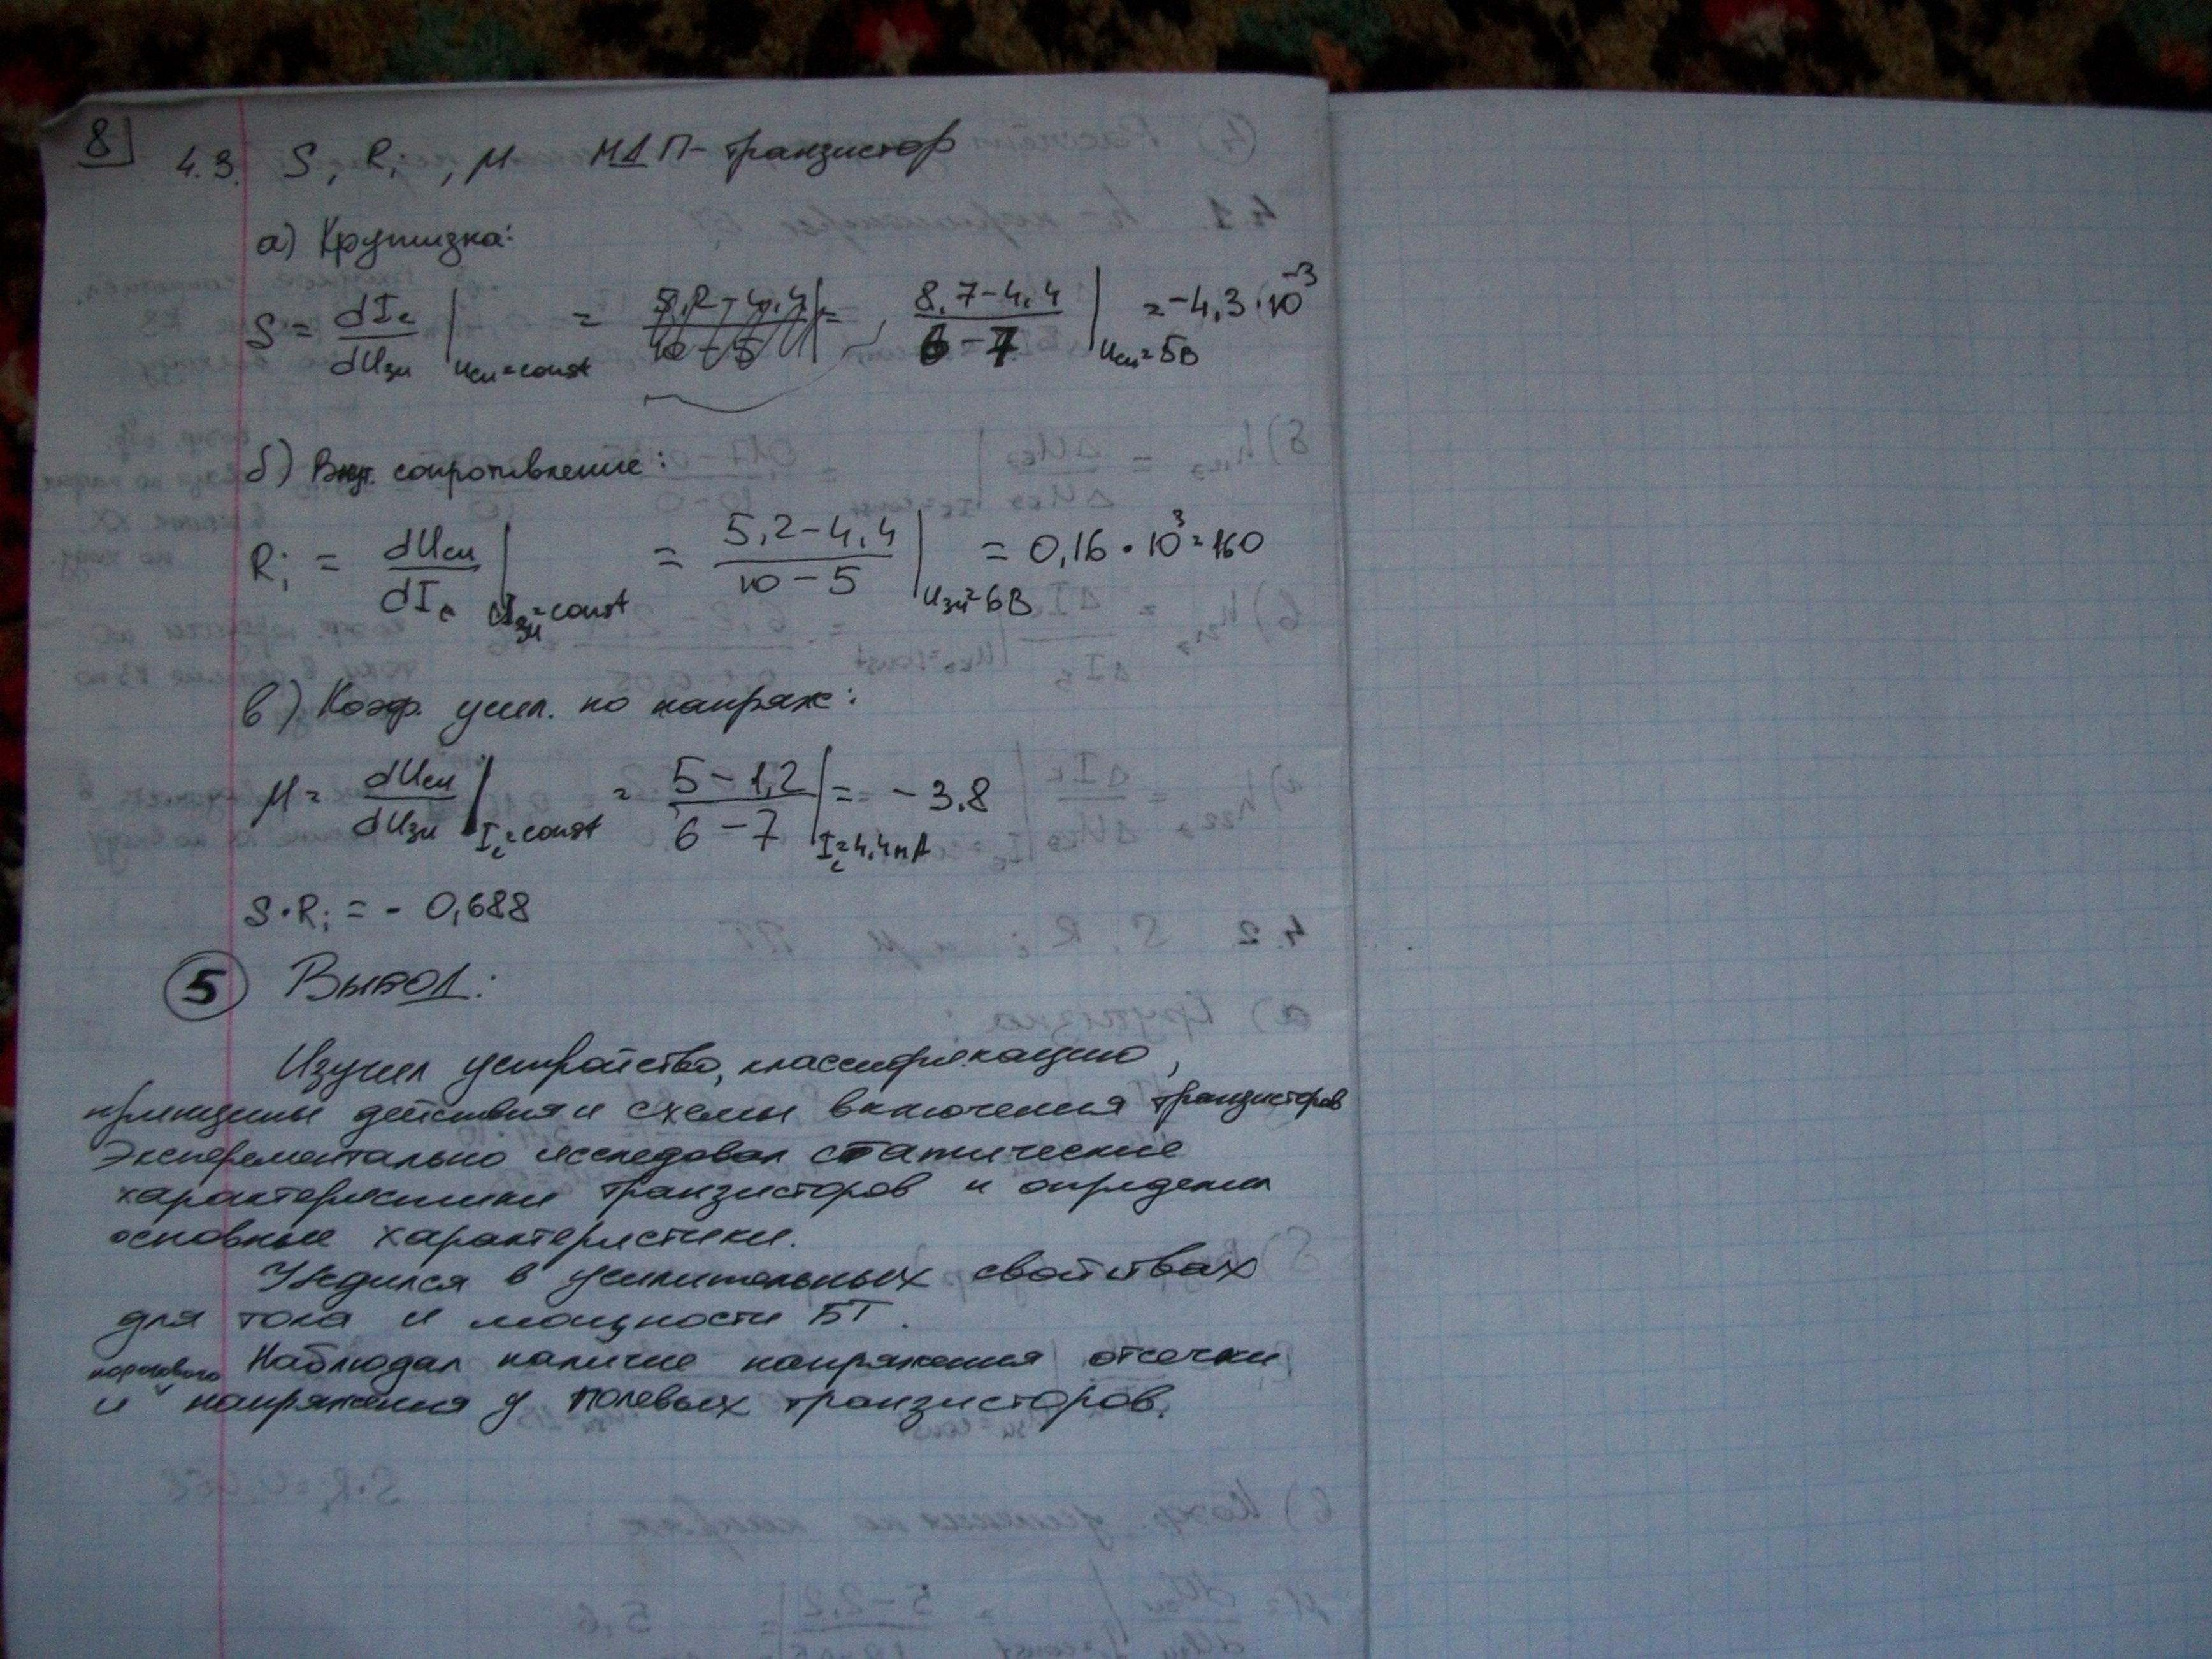 8
4.3. S, Ri, μ МДП-транзистор
а) Крутизка:
S = dIc/dUзи |Uси=const = (8,7-4,4)/(6-7) |Uси=5В = -4,3·10^-3
б) Внут. сопротивление:
Ri = dUси/dIc |Uзи=const = (5,2-4,4)/(10-5) |Uзи=6В = 0,16·10^3=160
в) Коэф. усил. по напряж:
μ = dUси/dUзи |Ic=const = (5-1,2)/(6-7) |Ic=4,4мА = -3,8
S·Ri = - 0,688
5 Вывод:
Изучил устройство, классификацию,
принципы действия и схемы включения транзисторов
Эксперементально исследовал статические
характеристики транзисторов и определил
основные характеристики.
Убедился в усилительных свойствах
для тока и мощности БТ.
Наблюдал наличие напряжения отсечки
и порогового напряжения у полевых транзисторов.